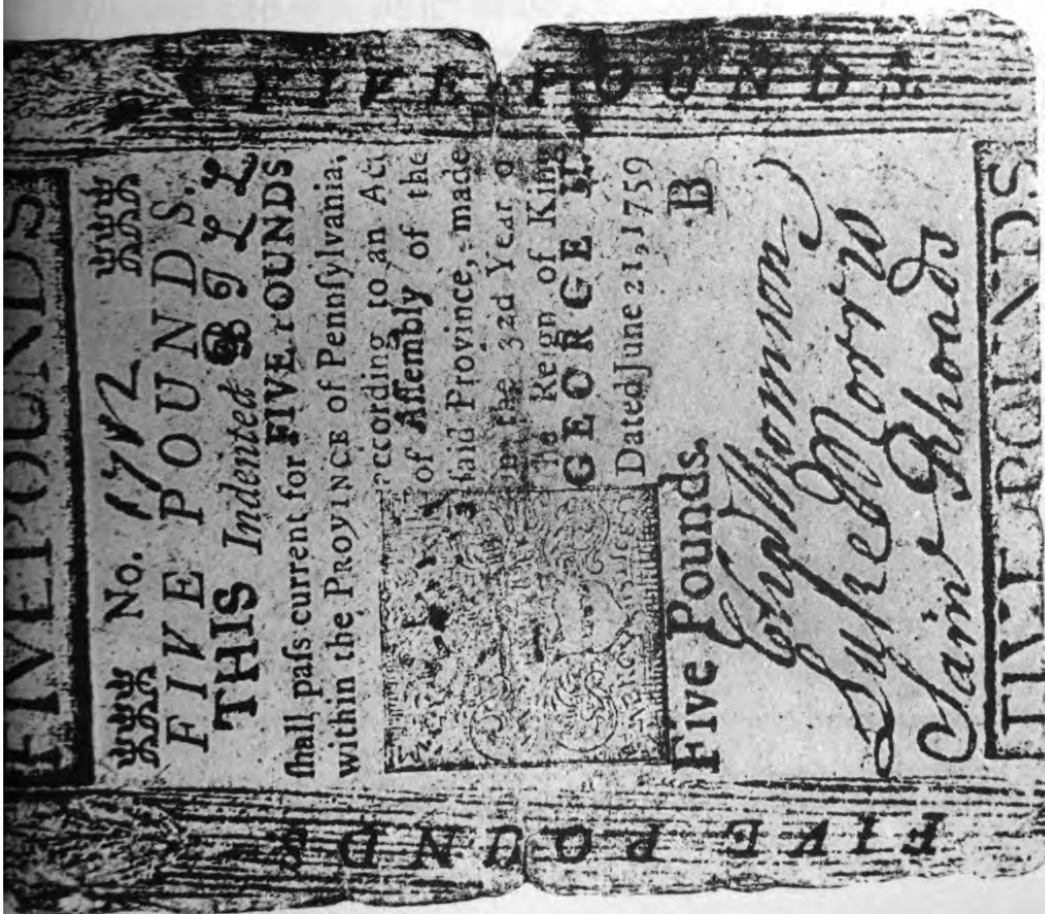 FIVE POUNDS
No.
FIVE POUNDS.
THIS Indented BILL
ſhall paſs current for FIVE POUNDS
within the PROVINCE of Pennſylvania,
according to an Act
of Aſſembly of the
ſaid Province, made
in the 32d Year o
the Reign of King
GEORGE II.
Dated June 21, 1759
Five Pounds. B
Cha Thomson
Luke Morris
Sam Rhoads
FIVE POUNDS
FIVE POUNDS
FIVE POUNDS